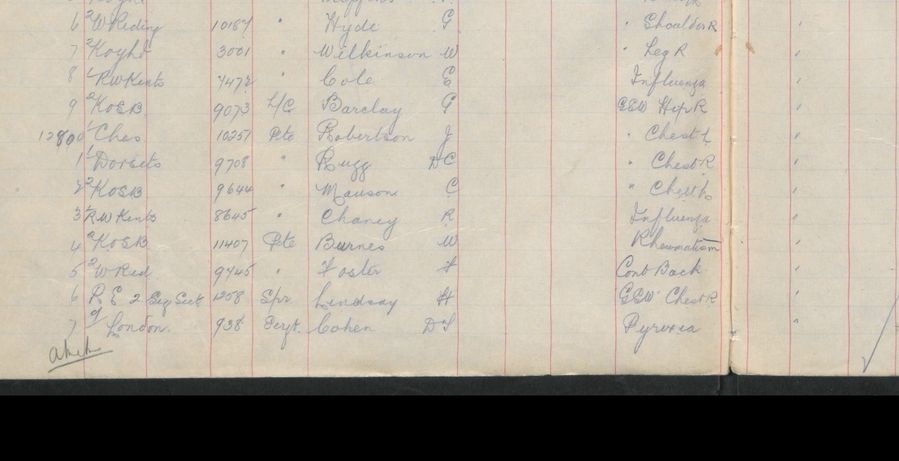 6 2 W Riding 10187 " Hyde G " Shoulder R
7 2 Koyli 3001 " Wilkinson W " Leg R
8 1 R W Kents 7472 " Cole E Influenza "
9 2 KOSB 9073 L/C Barclay G GSW Hip R "
12800 1 Ches 10251 Pte Robertson J " Chest L "
1 1 Dorsets 9708 " Rugg D C " Chest R "
2 2 KOSB 9644 " Manson C " Chest "
3 1 R W Kents 8645 " Chaney R Influenza "
4 2 KOSB 11407 Pte Burnes W Rheumatism "
5 2 W Rid 9745 " Foster F Cont Back "
6 R E 2 Sig Sect 1258 Spr Lindsay H GSW Chest R "
7 9 London 938 Sergt Cohen D S Pyrexia "